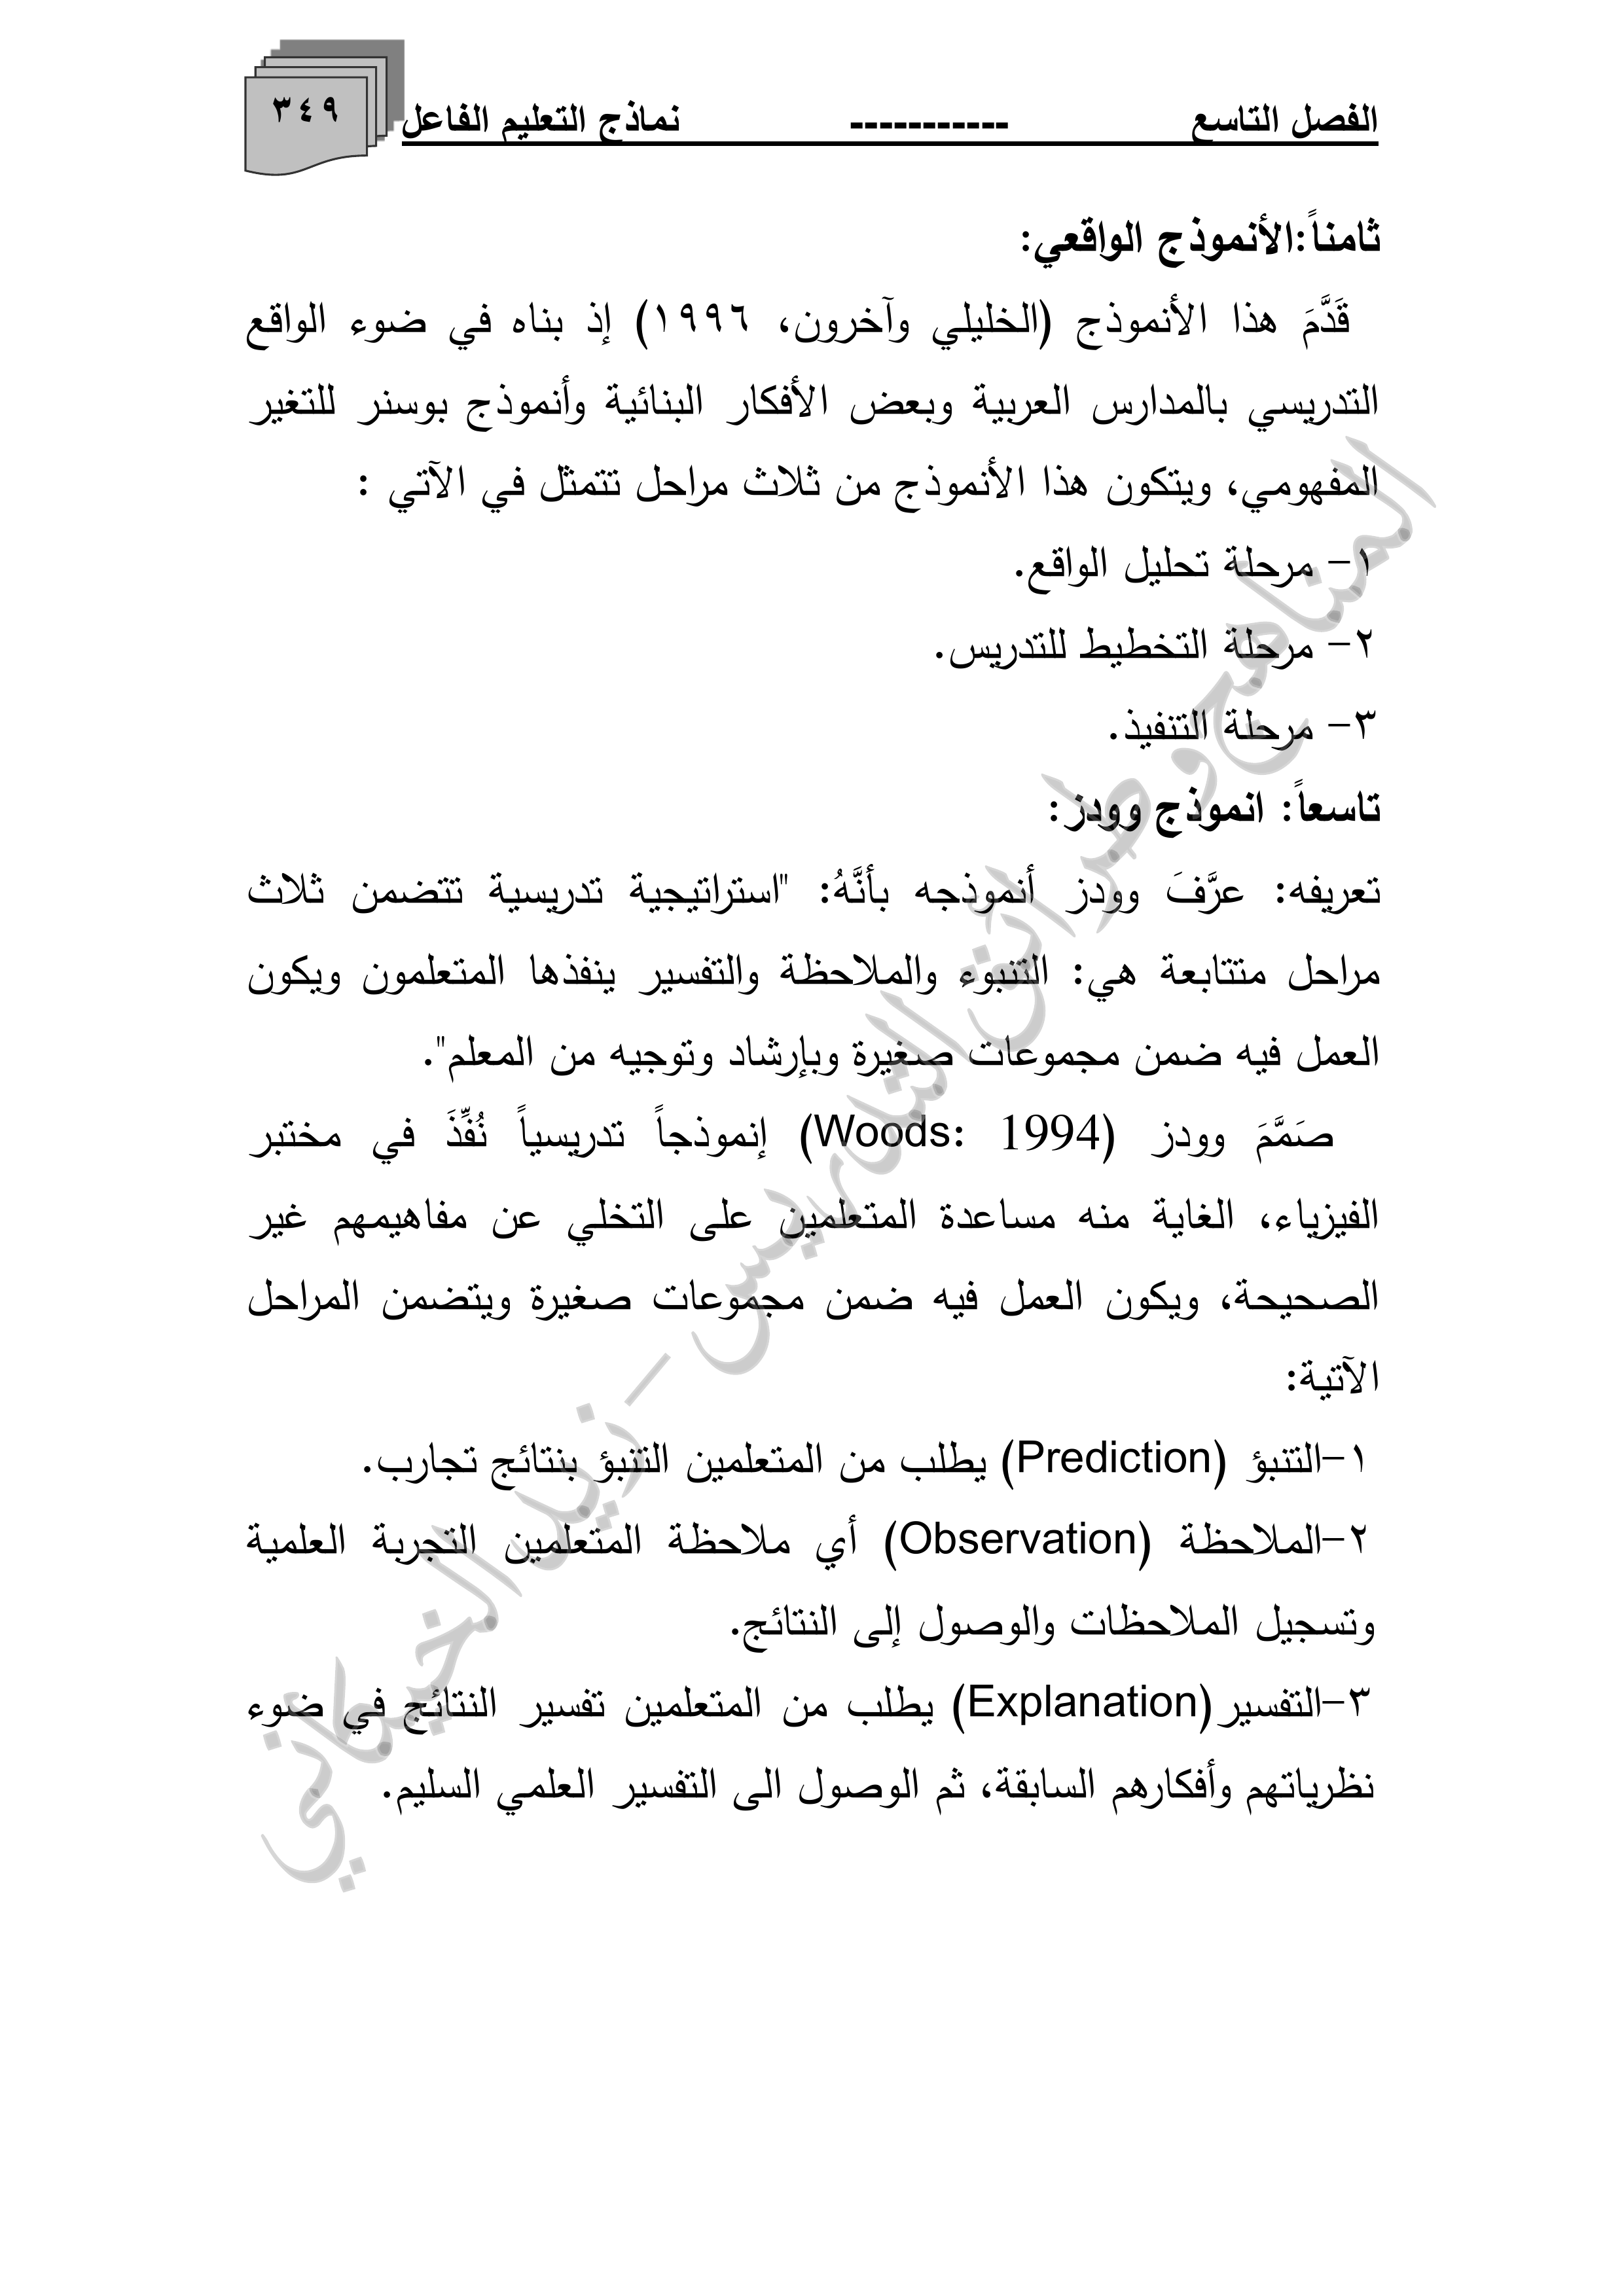 الفصل التاسع ----------- نماذج التعليم الفاعل ٣٤٩
ثامناً:الأنموذج الواقعي:
قَدَّمَ هذا الأنموذج (الخليلي وآخرون، ١٩٩٦) إذ بناه في ضوء الواقع
التدريسي بالمدارس العربية وبعض الأفكار البنائية وأنموذج بوسنر للتغير
المفهومي، ويتكون هذا الأنموذج من ثلاث مراحل تتمثل في الآتي :
١- مرحلة تحليل الواقع.
٢- مرحلة التخطيط للتدريس.
٣- مرحلة التنفيذ.
تاسعاً: انموذج وودز:
تعريفه: عرَّفَ وودز أنموذجه بأنَّهُ: "استراتيجية تدريسية تتضمن ثلاث
مراحل متتابعة هي: التنبوء والملاحظة والتفسير ينفذها المتعلمون ويكون
العمل فيه ضمن مجموعات صغيرة وبإرشاد وتوجيه من المعلم".
صَمَّمَ وودز (Woods: 1994) إنموذجاً تدريسياً نُفِّذَ في مختبر
الفيزياء، الغاية منه مساعدة المتعلمين على التخلي عن مفاهيمهم غير
الصحيحة، ويكون العمل فيه ضمن مجموعات صغيرة ويتضمن المراحل
الآتية:
١-التنبؤ (Prediction) يطلب من المتعلمين التنبؤ بنتائج تجارب.
٢-الملاحظة (Observation) أي ملاحظة المتعلمين التجربة العلمية
وتسجيل الملاحظات والوصول إلى النتائج.
٣-التفسير(Explanation) يطلب من المتعلمين تفسير النتائج في ضوء
نظرياتهم وأفكارهم السابقة، ثم الوصول الى التفسير العلمي السليم.
المناهج وطرائق التدريس – نبيل الخيكاني